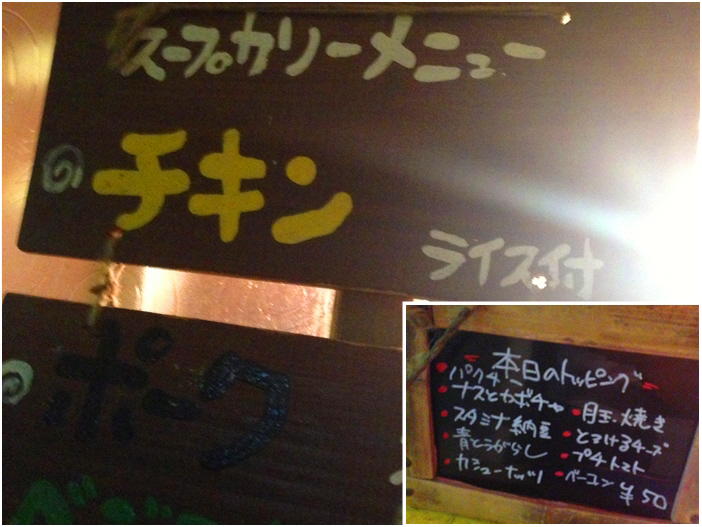 スープカリーメニュー
チキン
ライス付
ポーク
本日のトッピング
パクチー
ナスとカボチャ
スタミナ納豆
青とうがらし
カシューナッツ
目玉焼き
とろけるチーズ
プチトマト
ベーコン
¥50